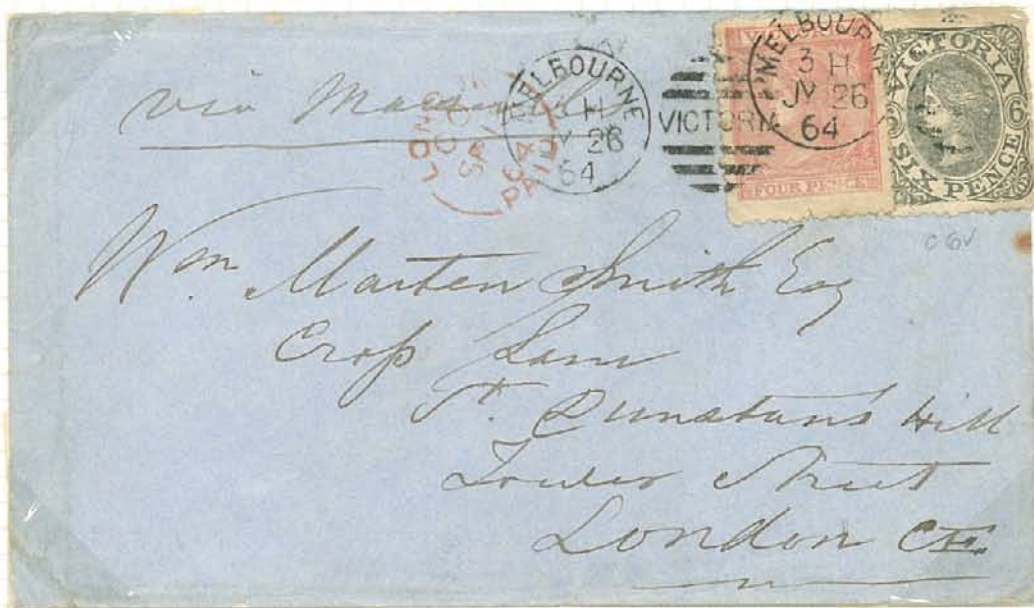 via Marseilles
MELBOURNE
3 H
JY 26
64
VICTORIA
MELBOURNE
3 H
JY 26
64
LON
PAID
FOUR PENCE
VICTORIA
SIX PENCE
6
Wm. Marten Smith Esq
Cross Lane
St. Dunstans Hill
Tower Street
London